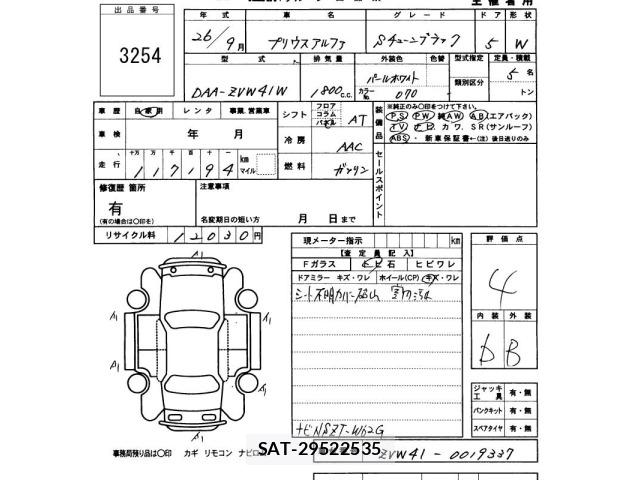 出品番号
3254
年式 車名 グレード ドア 形状
26/9月 プリウスアルファ Sチューンブラック 5 W
型式 排気量 外装色 色替 型式指定 定員・積載
DAA-ZVW41W 1800c.c. パールホワイト カラーNo 070 類別区分 5名 トン
車歴 自家用 レンタ 事業.営業車
車検 年 月
走行 十万 万 千 百 十 一 117194 km マイル
シフト フロア コラム パネル AT
冷房 AAC
燃料 ガソリン
装備品 ※純正のみ○印をつけて下さい。
PS PW 純AW AB(エアバック)
TV ナビ カワ. SR(サンルーフ)
ABS・新車保証書←(注)後日送りのみ
セールスポイント
修復歴 箇所
有
(有の場合は○印を)
注意事項
名変期日の短い方 月 日まで
リサイクル料 12030円
現メーター指示 km
【査定員記入】
Fガラス 飛石 ヒビワレ
ドアミラー キズ・ワレ ホイール(CP) キズ・ワレ
ナビNSZT-W62G
評価点
4
内装 外装
D B
ジャッキ 工具 有・無
パンクキット 有・無
スペアタイヤ 有・無
A1 A1
A1
A1
A1
事務局預り品は○印 カギ リモコン ナビロム
SAT-29522535
ZVW41-0019337